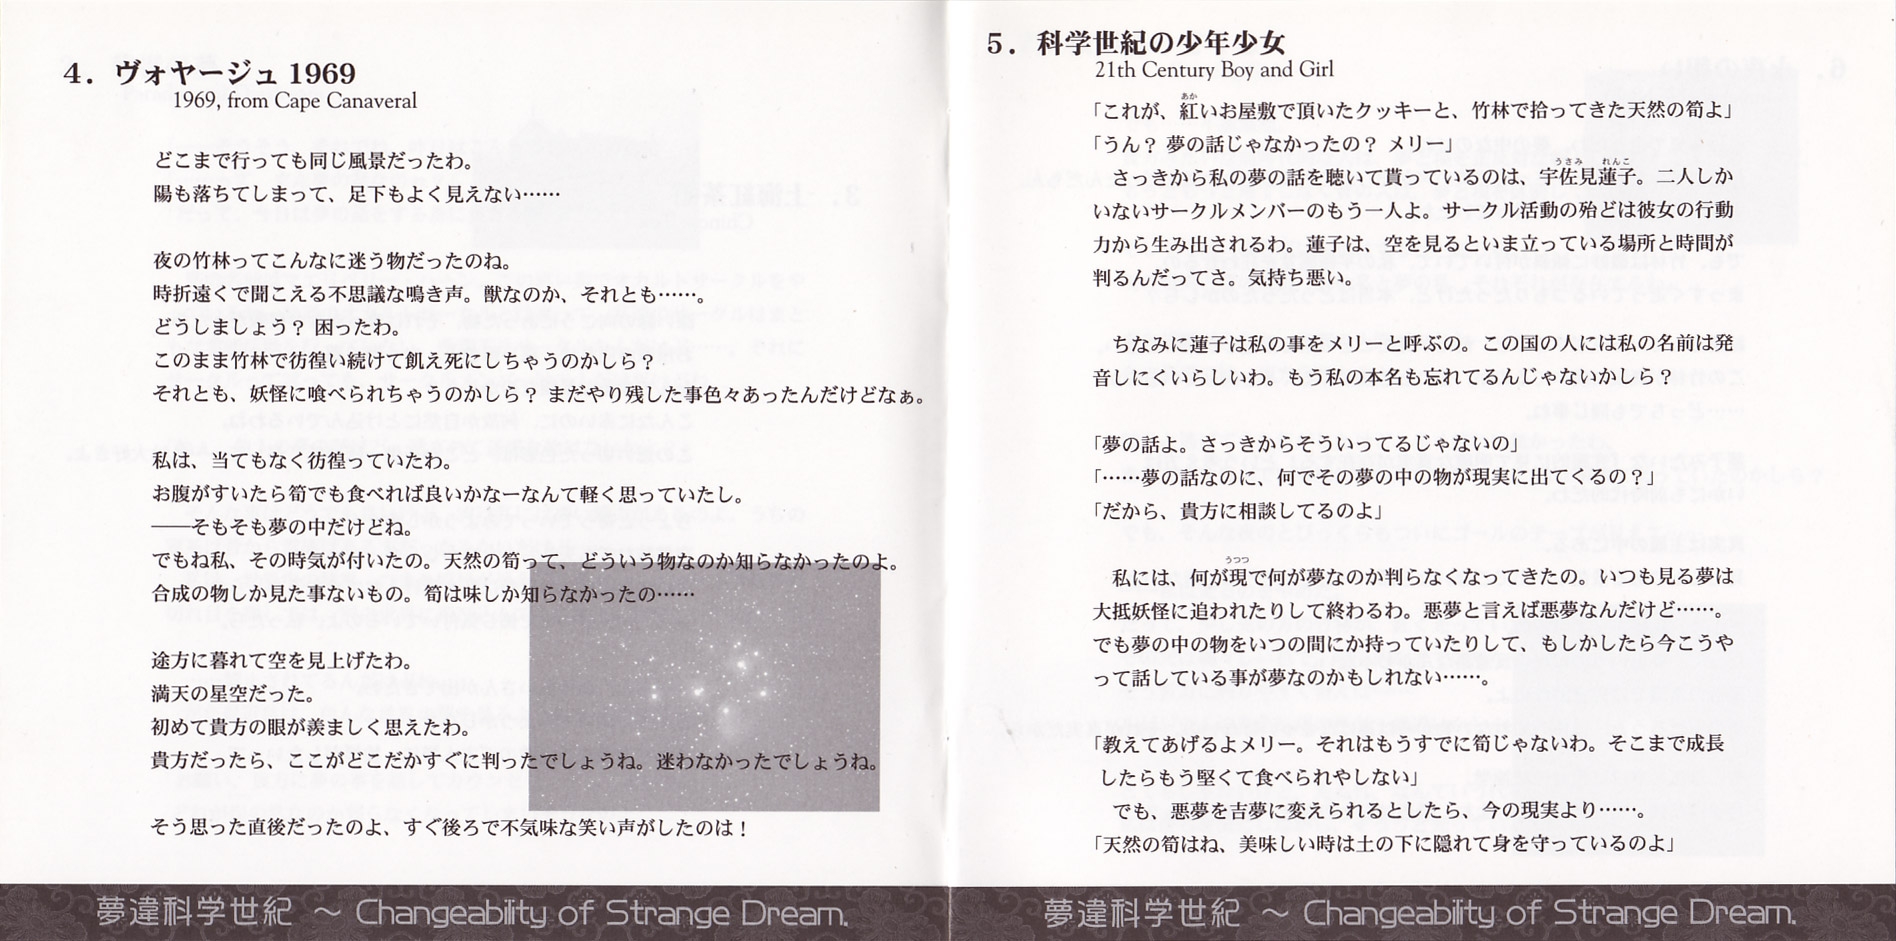 4．ヴォヤージュ 1969
1969, from Cape Canaveral
どこまで行っても同じ風景だったわ。
陽も落ちてしまって、足下もよく見えない……
夜の竹林ってこんなに迷う物だったのね。
時折遠くで聞こえる不思議な鳴き声。獣なのか、それとも……。
どうしましょう？ 困ったわ。
このまま竹林で彷徨い続けて飢え死にしちゃうのかしら？
それとも、妖怪に喰べられちゃうのかしら？ まだやり残した事色々あったんだけどなぁ。
私は、当てもなく彷徨っていたわ。
お腹がすいたら筍でも食べれば良いかなーなんて軽く思っていたし。
――そもそも夢の中だけどね。
でもね私、その時気が付いたの。天然の筍って、どういう物なのか知らなかったのよ。
合成の物しか見た事ないもの。筍は味しか知らなかったの……
途方に暮れて空を見上げたわ。
満天の星空だった。
初めて貴方の眼が羨ましく思えたわ。
貴方だったら、ここがどこだかすぐに判ったでしょうね。迷わなかったでしょうね。
そう思った直後だったのよ、すぐ後ろで不気味な笑い声がしたのは！
夢違科学世紀 ～ Changeability of Strange Dream.
5．科学世紀の少年少女
21th Century Boy and Girl
あか
「これが、紅いお屋敷で頂いたクッキーと、竹林で拾ってきた天然の筍よ」
「うん？ 夢の話じゃなかったの？ メリー」
うさみ れんこ
さっきから私の夢の話を聴いて貰っているのは、宇佐見蓮子。二人しか
いないサークルメンバーのもう一人よ。サークル活動の殆どは彼女の行動
力から生み出されるわ。蓮子は、空を見るといま立っている場所と時間が
判るんだってさ。気持ち悪い。
ちなみに蓮子は私の事をメリーと呼ぶの。この国の人には私の名前は発
音しにくいらしいわ。もう私の本名も忘れてるんじゃないかしら？
「夢の話よ。さっきからそういってるじゃないの」
「……夢の話なのに、何でその夢の中の物が現実に出てくるの？」
「だから、貴方に相談してるのよ」
うつつ
私には、何が現で何が夢なのか判らなくなってきたの。いつも見る夢は
大抵妖怪に追われたりして終わるわ。悪夢と言えば悪夢なんだけど……。
でも夢の中の物をいつの間にか持っていたりして、もしかしたら今こうや
って話している事が夢なのかもしれない……。
「教えてあげるよメリー。それはもうすでに筍じゃないわ。そこまで成長
したらもう堅くて食べられやしない」
でも、悪夢を吉夢に変えられるとしたら、今の現実より……。
「天然の筍はね、美味しい時は土の下に隠れて身を守っているのよ」
夢違科学世紀 ～ Changeability of Strange Dream.